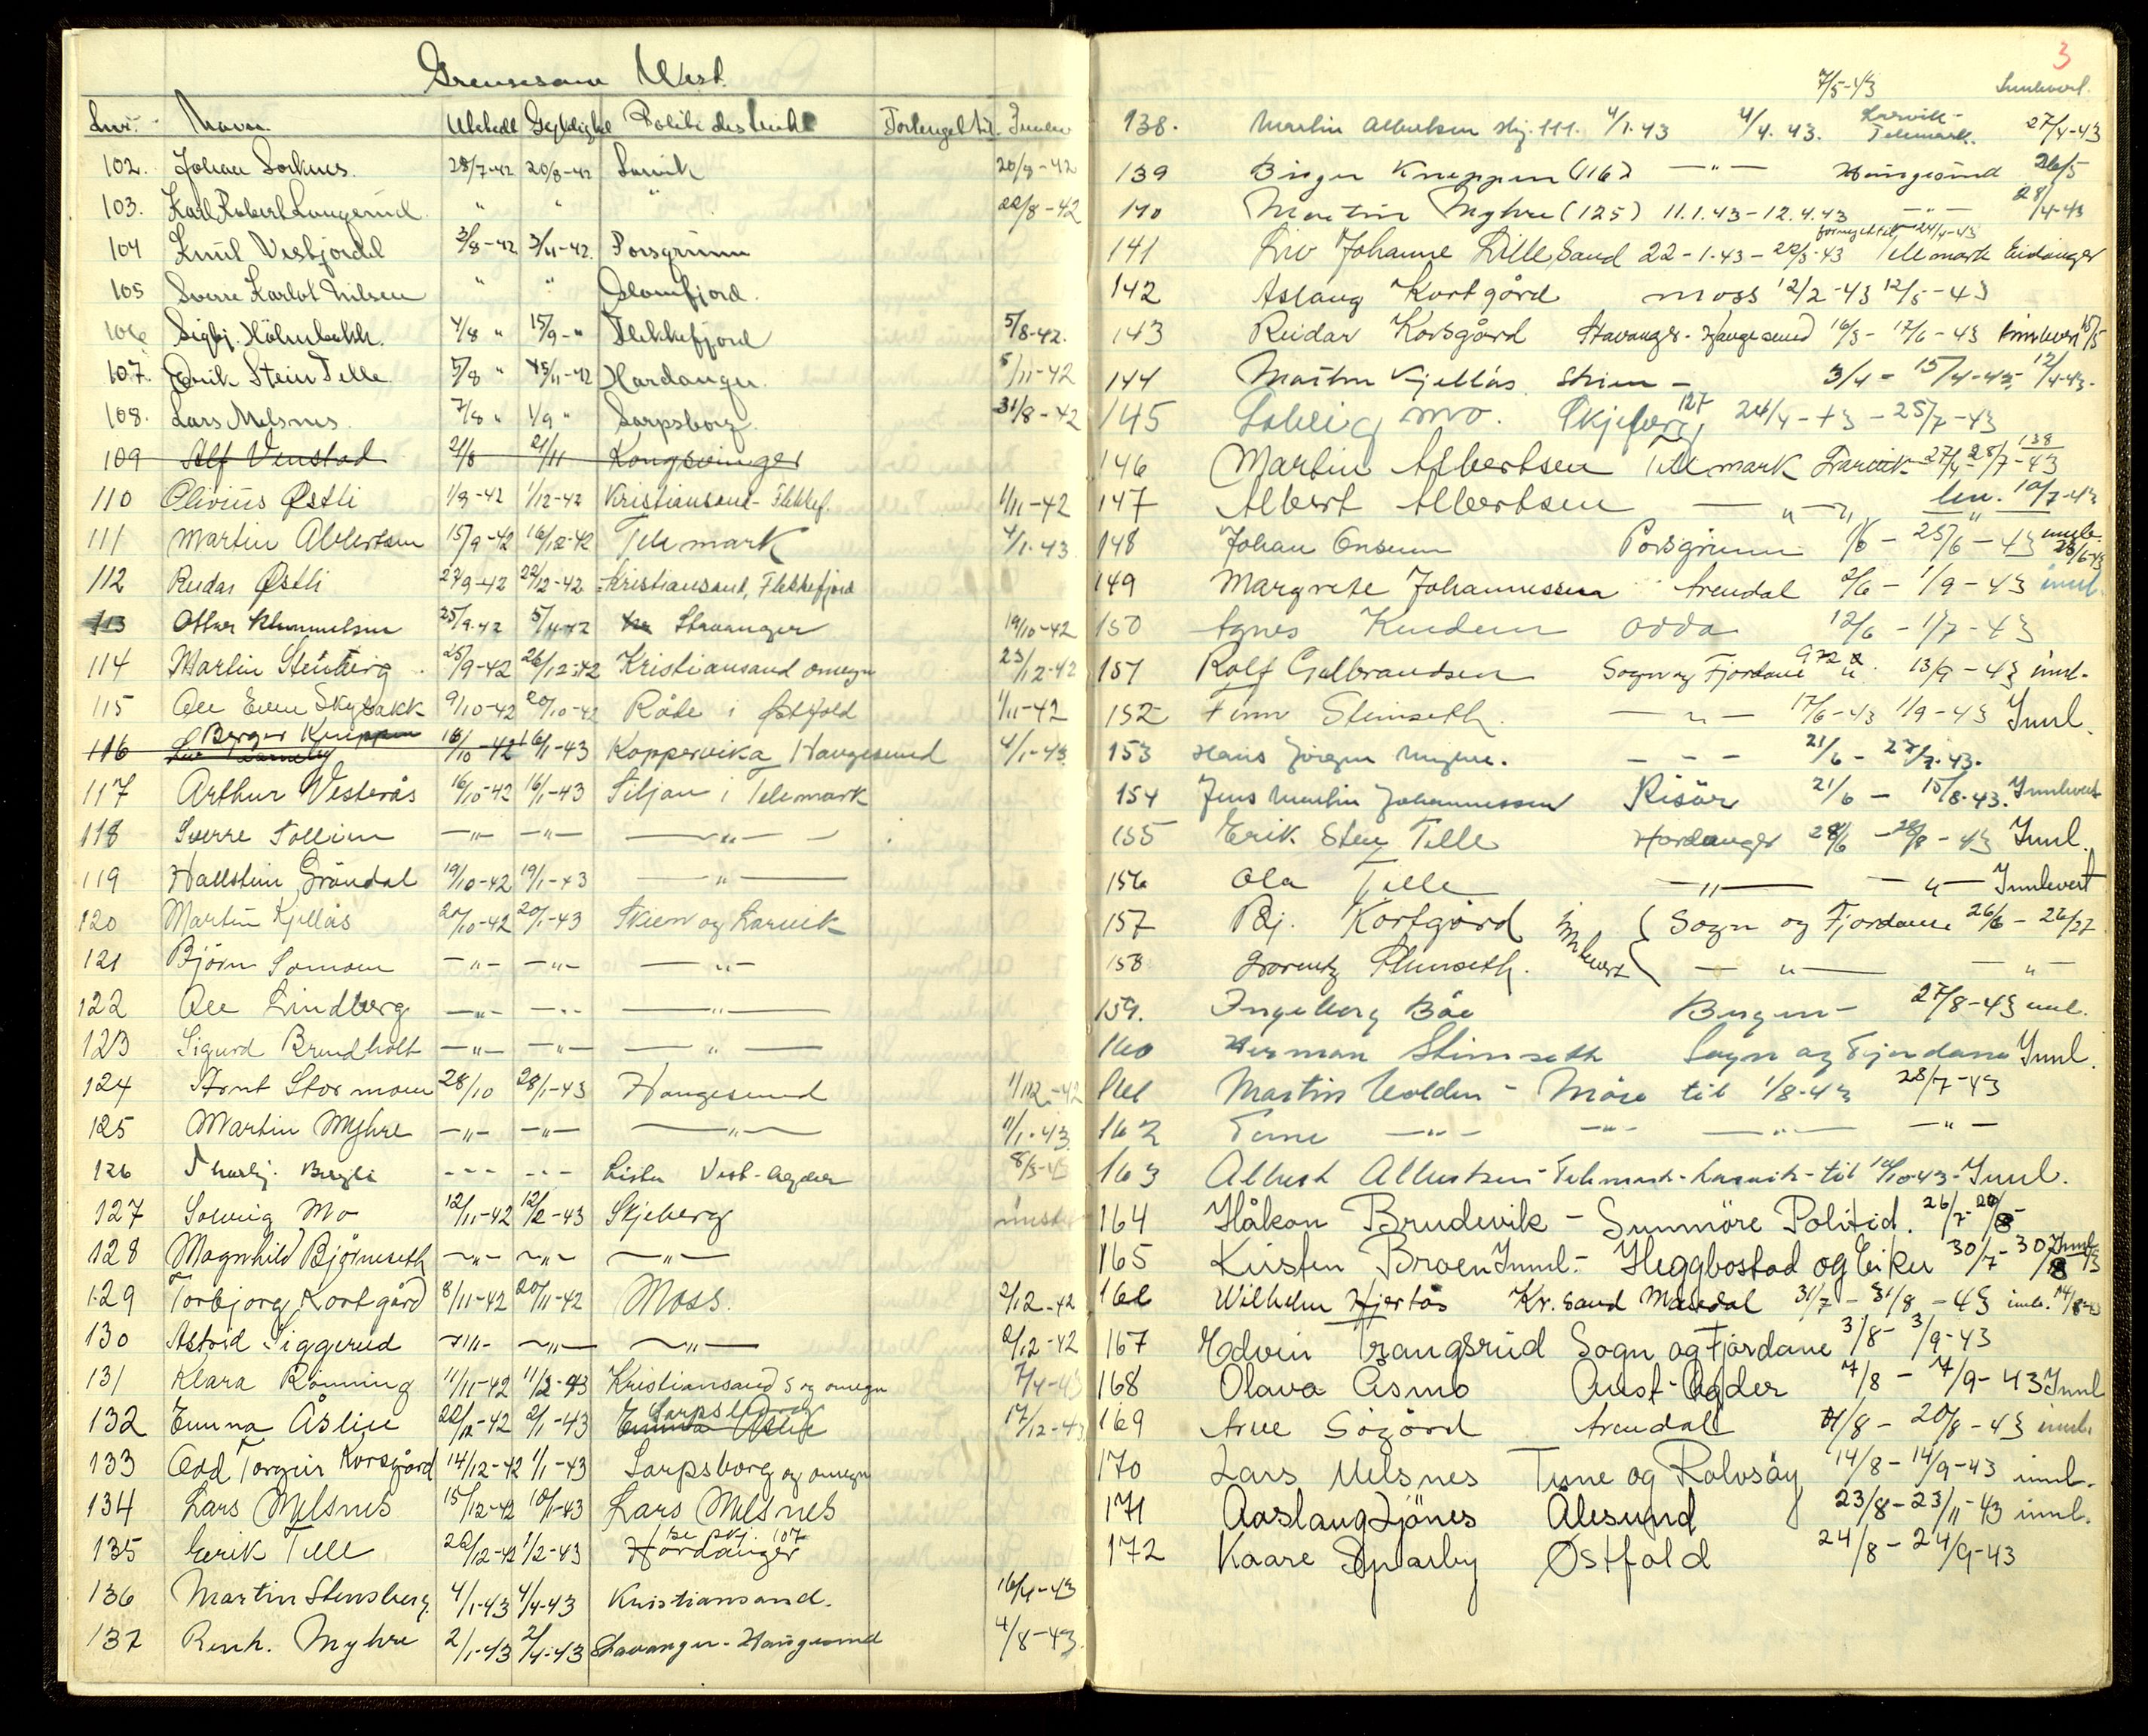 Grensesone Vest.
Lnr. Navn. Utstedt Gyldighet Politidistrikt Forlenget til. Innlev
102. Johan Sorknes. 28/7-42 20/8-42 Larvik 20/8-42
103. Karl Robert Laugerud " " " 22/8-42
104 Knut Vestfjordd 3/8-42 3/11-42. Porsgrunn
105 Sverre Karlot Nilsen " " Glomfjord.
106 Sigbj. Holmbakk. 4/8 " 15/9-" Flekkefjord 5/8-42.
107. Erik Stein Telle 5/8 " 5/11-42 Hardanger. 5/11-42
108. Lars Melsnes. 7/8 " 1/9 " Sarpsborg 31/8-42
109 Alf Venstad 21/8 21/11 Kongsvinger
110 Olivius Østli 1/9-42 1/12-42 Kristiansand-Flekkef. 1/11-42
111 Martin Albertsen 15/9-42 16/12-42 Telemark 4/1-43
112 Reidar Østli 22/9-42 22/12-42 Kristiansand, Flekkefjord
113 Ottar Klemmetsen 25/9-42 5/11-42 Stavanger 19/10-42
114 Martin Stenberg 25/9-42 26/12-42 Kristiansand omegn 23/12-42
115 Ole Even Skybakk 9/10-42 20/10-42 Råde i Østfold 1/11-42
116 Berger Knippen 16/10-42 16/1-43 Koppervika Haugesund 4/1-43
117 Arthur Vesterås 16/10-42 16/1-43 Siljan i Telemark
118 Sverre Tollim -"- -"- -"-
119 Hallstein Gröndal 19/10-42 19/1-43 -"-
120 Martin Kjellås 20/10-42 20/1-43 Skien og Larvik
121 Björn Somoen -"- -"- -"-
122 Ole Lindberg -"- -"- -"-
123 Sigurd Brendholt -"- -"- -"-
124 Arnt Stormoen 28/10 28/1-43 Haugesund 1/12-42
125 Martin Myhre -"- -"- -"- 11/1-43
126 Thorbj. Bergli --- --- Lista Vest-Agder 8/3-43
127 Solveig Mo 12/11-42 12/2-43 Skjeberg
128 Magnhild Bjørneseth -"- -"- -"-
129 Torbjorg Kortgård 8/11-42 20/11-42 Moss. 2/12-42
130 Astrid Siggerud -"- -"- -"- 2/12-42
131 Klara Rönning 11/11-42 11/2-43 Kristiansand S og omegn 7/4-43
132 Emma Åslie 22/12-42 2/1-43 Emma Åslie Sarpsborg 17/12-43
133 Odd Torgeir Korsgård 14/12-42 1/1-43 Sarpsborg og omegn
134 Lars Melsnes 15/12-42 10/1-43 Lars Melsnes
135 Erik Telle 22/12-42 1/2-43 Hardanger se skj. 107
136 Martin Stensberg. 4/1-43 4/4-43 Kristiansand. 16/4-43
137 Reinh. Myhre 2/1-43 2/4-43 Stavanger-Haugesund 4/8-43
3
7/5-43 Innlevert.
138. Martin Albertsen skj. 111. 4/1.43 4/4.43. Larvik-Telemark. 27/4-43
139 Birger Kneppen (116) -"- Haugesund 26/5
140 Martin Myhre (125) 11.1.43-12.4.43 -"- 28/4-43
fornyet til 24/4-43
141 Liv Johanne Lillesand 22-1-43-22/3-43 Telemark Eidanger
142 Aslaug Kortgård Moss 12/2-43 12/5-43
143 Reidar Korsgård Stavanger-Haugesund 16/3-17/6-43 innlevert 18/5
144 Martin Kjellås Skien - 3/4-15/4-43 12/4-43.
145 Solveig Mo. Skjeberg 127 24/4-43-25/7-43
146 Martin Albertsen Telemark Larvik 27/4-28/7-43 138
147 Albert Albertsen -"- -"- lev. 10/7-43
148 Johan Ensrun Porsgrunn 1/6-25/6-43 innle. 23/6-43
149 Margrete Johannessen Arendal 2/6-1/9-43 innl.
150 Agnes Kvidem Odda 12/6-1/7-43
151 Rolf Gulbrandsen Sogn og Fjordane 13/9-43 innl.
152 Finn Steinseth. -"- 17/6-43 1/9-43 Innl.
153 Hans Jörgen Myhre. --- 21/6-27/7-43.
154 Jens Martin Johannessen Risör 21/6-15/8-43. Innlevert
155 Erik Sten Telle Hardanger 28/6-28/8-43 Innl.
156 Ola Telle -"- -"- Innlevert
157 Bj. Kortgård innlevert { Sogn og Fjordane 26/6-26/27
158 Lorentz Steinseth. -"- -"-
159. Ingeborg Båe Bergen- 27/8-43 innl.
160 Herman Steinseth Sogn og Fjordane Innl.
161 Martin Volden - Möre til 1/8-43 28/7-43
162 Tone -"- -"- -"- -"-
163 Albert Albertsen - Telemark-Larvik-til 10/10-43-Innl.
164 Håkon Brudevik - Sunmöre Politid. 26/7-20/8-
165 Kirsten Broen Innl.- Heggbostad og Eiken 30/7-30/8 Innl. 43
166 Wilhelm Hjertås Kr.sand Mandal 31/7-31/8-43 innl. 14/8-43
167 Edvin Trangsrud Sogn og Fjordane 3/8-3/9-43
168 Olava Åsmo Aust-Agder 7/8-7/9-43 Innl
169 Arne Sögård Arendal 11/8-20/8-43 innl.
170 Lars Melsnes Tune og Rolvsöy 14/8-14/9-43 innl.
171 Aaslaug Ljönes Ålesund 23/8-23/11-43 innl.
172 Kaare Sparby Östfold 24/8-24/9-43